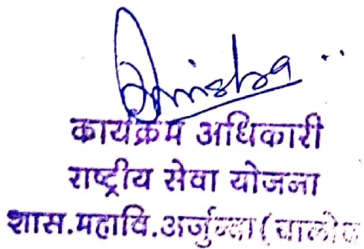 कार्यक्रम अधिकारी
राष्ट्रीय सेवा योजना
शास.महावि.अर्जुन्दा